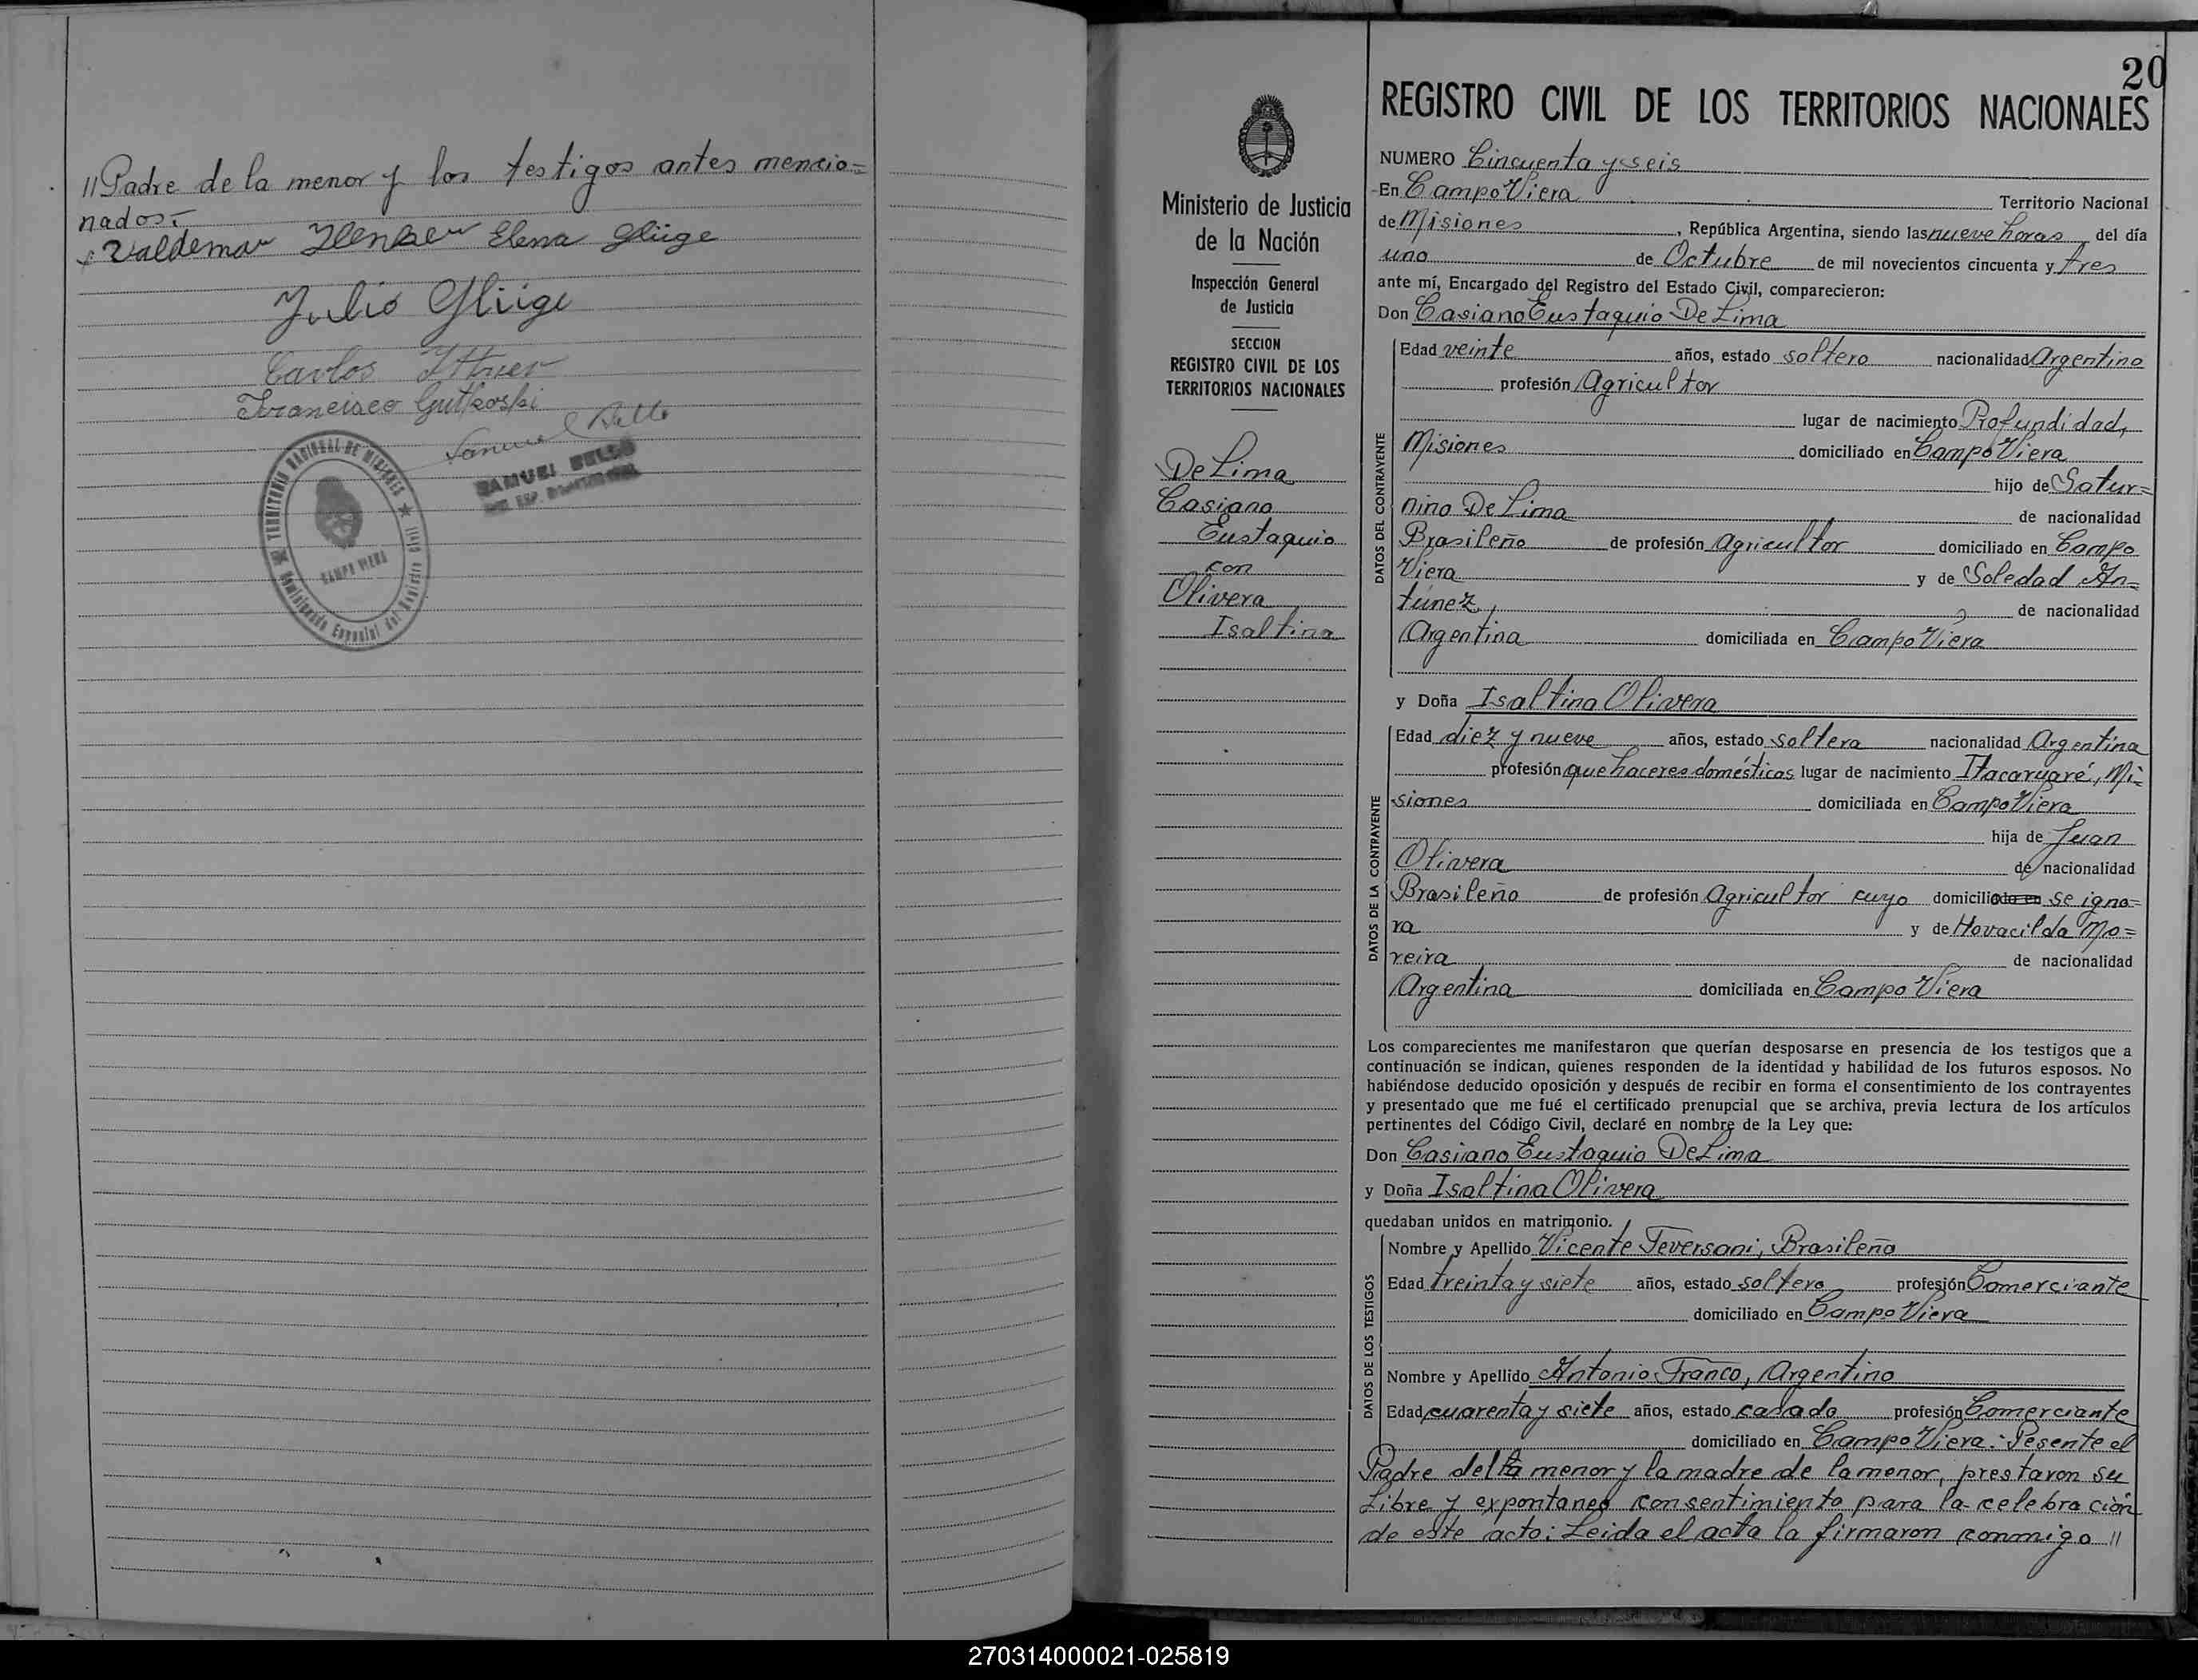 //Padre de la menor y los testigos antes mencio=
nados.-
Valdemar Elena Glüge
Julio Glüge
Carlos
Francisco Gutkoski
Samuel Bello
SAMUEL BELLO
TERRITORIO NACIONAL DE MISIONES
CAMPO VIERA
20
REGISTRO CIVIL DE LOS TERRITORIOS NACIONALES
Ministerio de Justicia
de la Nación
Inspección General
de Justicia
SECCION
REGISTRO CIVIL DE LOS
TERRITORIOS NACIONALES
De Lima
Casiano
Eustaquio
con
Olivera
Isaltina
NUMERO Cincuenta y seis
En Campo Viera Territorio Nacional
de Misiones, República Argentina, siendo las nueve horas del día
uno de Octubre de mil novecientos cincuenta y tres
ante mí, Encargado del Registro del Estado Civil, comparecieron:
Don Casiano Eustaquio De Lima
DATOS DEL CONTRAYENTE
Edad veinte años, estado soltero nacionalidad Argentino
profesión Agricultor
lugar de nacimiento Profundidad,
Misiones domiciliado en Campo Viera
hijo de Satur=
nino De Lima de nacionalidad
Brasileño de profesión Agricultor domiciliado en Campo
Viera y de Soledad An=
túnez, de nacionalidad
Argentina domiciliada en Campo Viera
y Doña Isaltina Olivera
DATOS DE LA CONTRAYENTE
Edad diez y nueve años, estado soltera nacionalidad Argentina
profesión quehaceres domésticos lugar de nacimiento Itacaruaré, Mi=
siones domiciliada en Campo Viera
hija de Juan
Olivera de nacionalidad
Brasileño de profesión Agricultor cuyo domiciliado en se igno=
ra y de Horacilda Mo=
reira de nacionalidad
Argentina domiciliada en Campo Viera
Los comparecientes me manifestaron que querían desposarse en presencia de los testigos que a
continuación se indican, quienes responden de la identidad y habilidad de los futuros esposos. No
habiéndose deducido oposición y después de recibir en forma el consentimiento de los contrayentes
y presentado que me fué el certificado prenupcial que se archiva, previa lectura de los artículos
pertinentes del Código Civil, declaré en nombre de la Ley que:
Don Casiano Eustaquio De Lima
y Doña Isaltina Olivera
quedaban unidos en matrimonio.
DATOS DE LOS TESTIGOS
Nombre y Apellido Vicente Teversani, Brasileño
Edad treinta y siete años, estado soltero profesión Comerciante
domiciliado en Campo Viera
Nombre y Apellido Antonio Franco, Argentino
Edad cuarenta y siete años, estado casado profesión Comerciante
domiciliado en Campo Viera.- Pesente el
Padre del menor y la madre de la menor, prestaron su
Libre y expontaneo consentimiento para la celebración
de este acto: Leida el acta la firmaron conmigo //
270314000021-025819